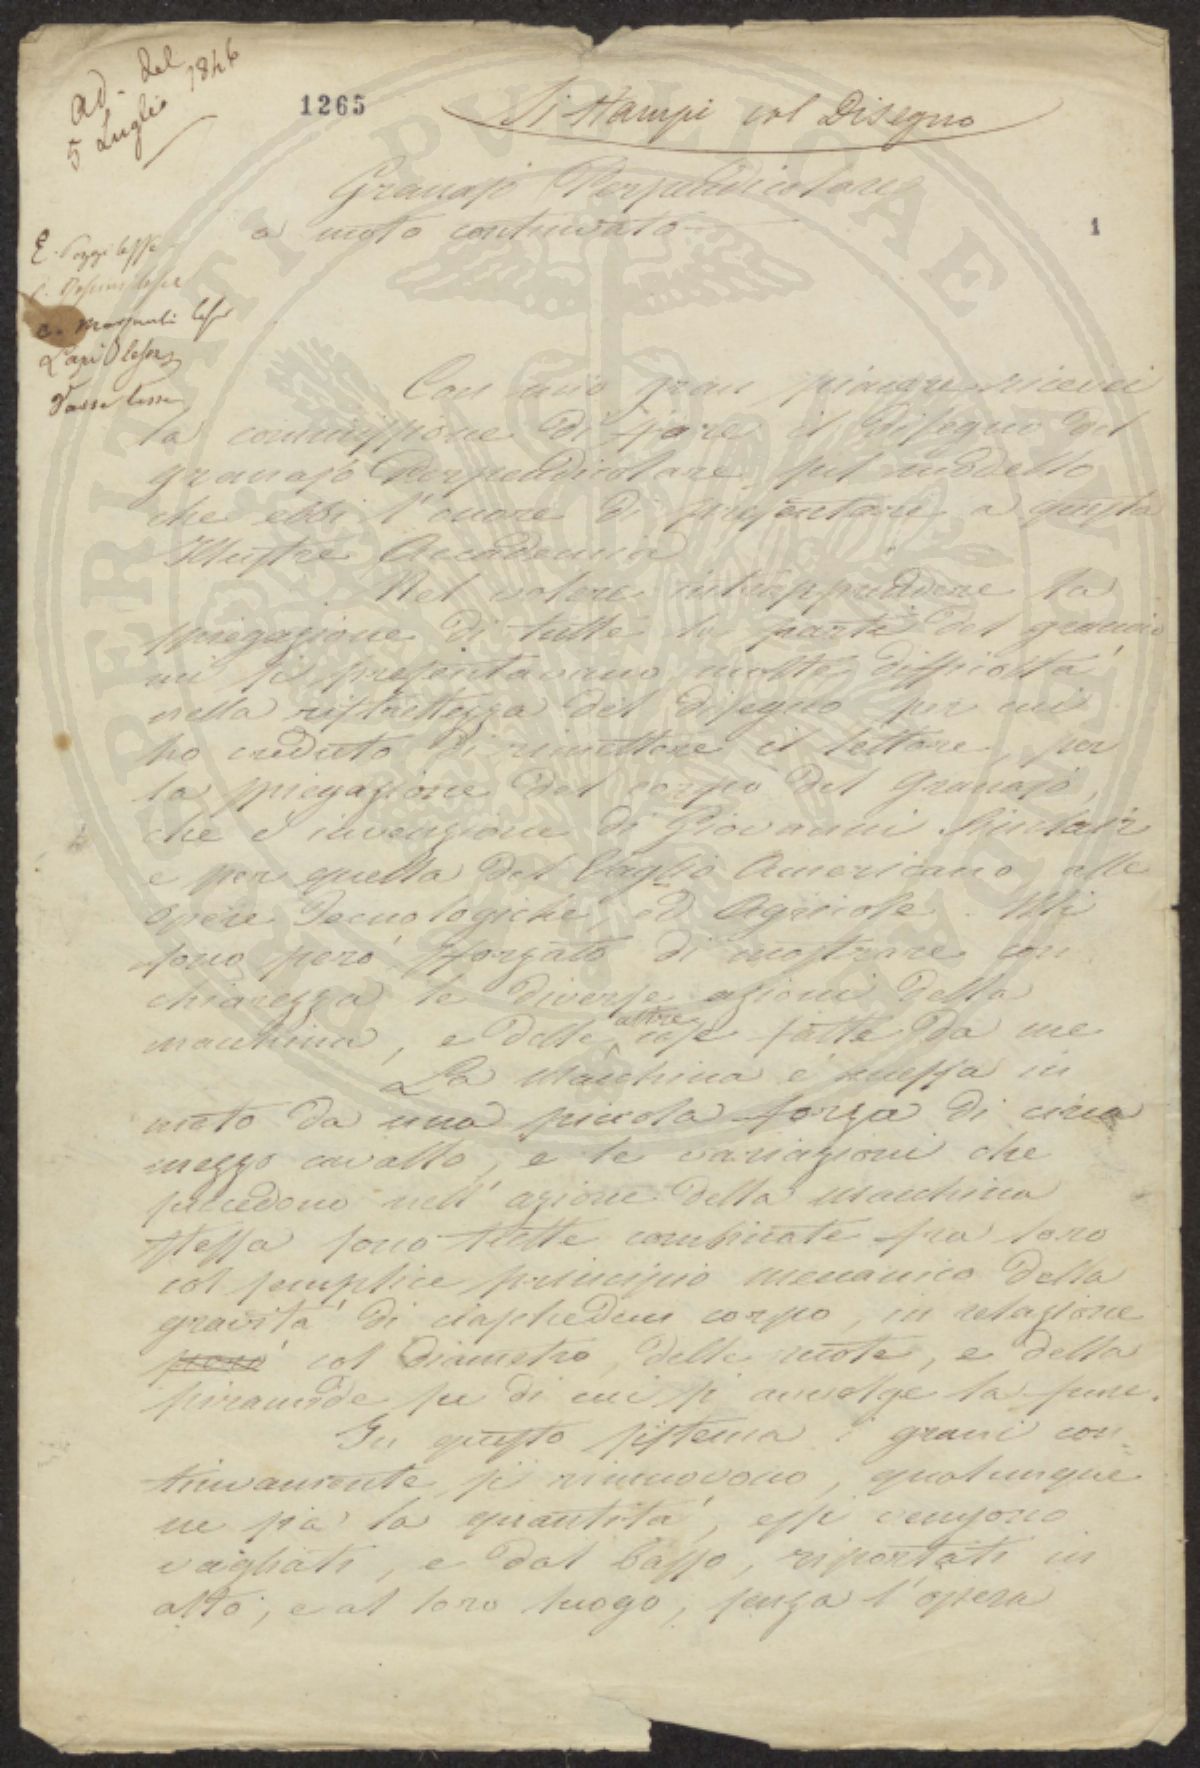 Ad. del
5 Luglio 1846
1265
Si stampi col Disegno
Granajo Perpendicolare
a moto continuato
1
E. Poggi lesse
Lapi lesse
Con mio gran piacere ricevei
la commissione di fare il disegno del
granajo Perpendicolare sul modello
che ebbi l'onore di presentare a questa
Illustre Accademia
Nel volere intrapprendere la
spiegazione di tutte le parti del granaio
mi si presentavano molte difficoltà
nella ristrettezza del disegno per cui
ho creduto di rimettere il lettore, per
la spiegazione del corpo del Granajo,
che è invenzione di Giovanni Sinclair
e per quella del Vaglio Americano alle
opere Tecnologiche, ed Agricole. Mi
sono però sforzato di mostrare con
chiarezza le diverse azioni della
macchina, e delle altre cose fatte da me
La Macchina è messa in
moto da una piccola forza di circa
mezzo cavallo, e le variazioni che
succedono nell'azione della Macchina
stessa sono tutte combinate fra loro
col semplice principio meccanico della
gravità di ciaschedun corpo, in relazione
però col diametro delle ruote, e della
piramide su di cui si avvolge la fune.
In questo sistema i grani con=
tinuamente si rimuovono, qualunque
ne sia la quantità, essi vengono
vagliati, e dal basso, riportati in
alto, e al loro luogo, senza l'opera